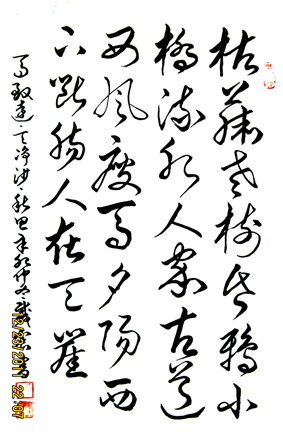 枯藤老树昏鸦小
桥流水人家古道
西风瘦马夕阳西
下断肠人在天崖
马致远天净沙秋思
12/23/2011 22:07